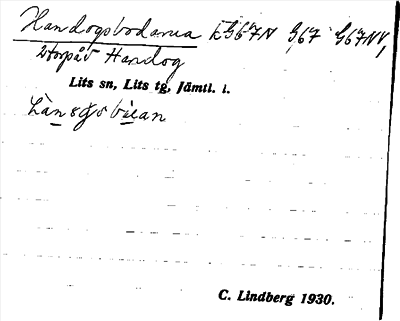 Handogsbodarna EG67N G67 G67NV,
Storpåv Handog
Lits sn, Lits tg, Jämtl. l.
C. Lindberg 1930.